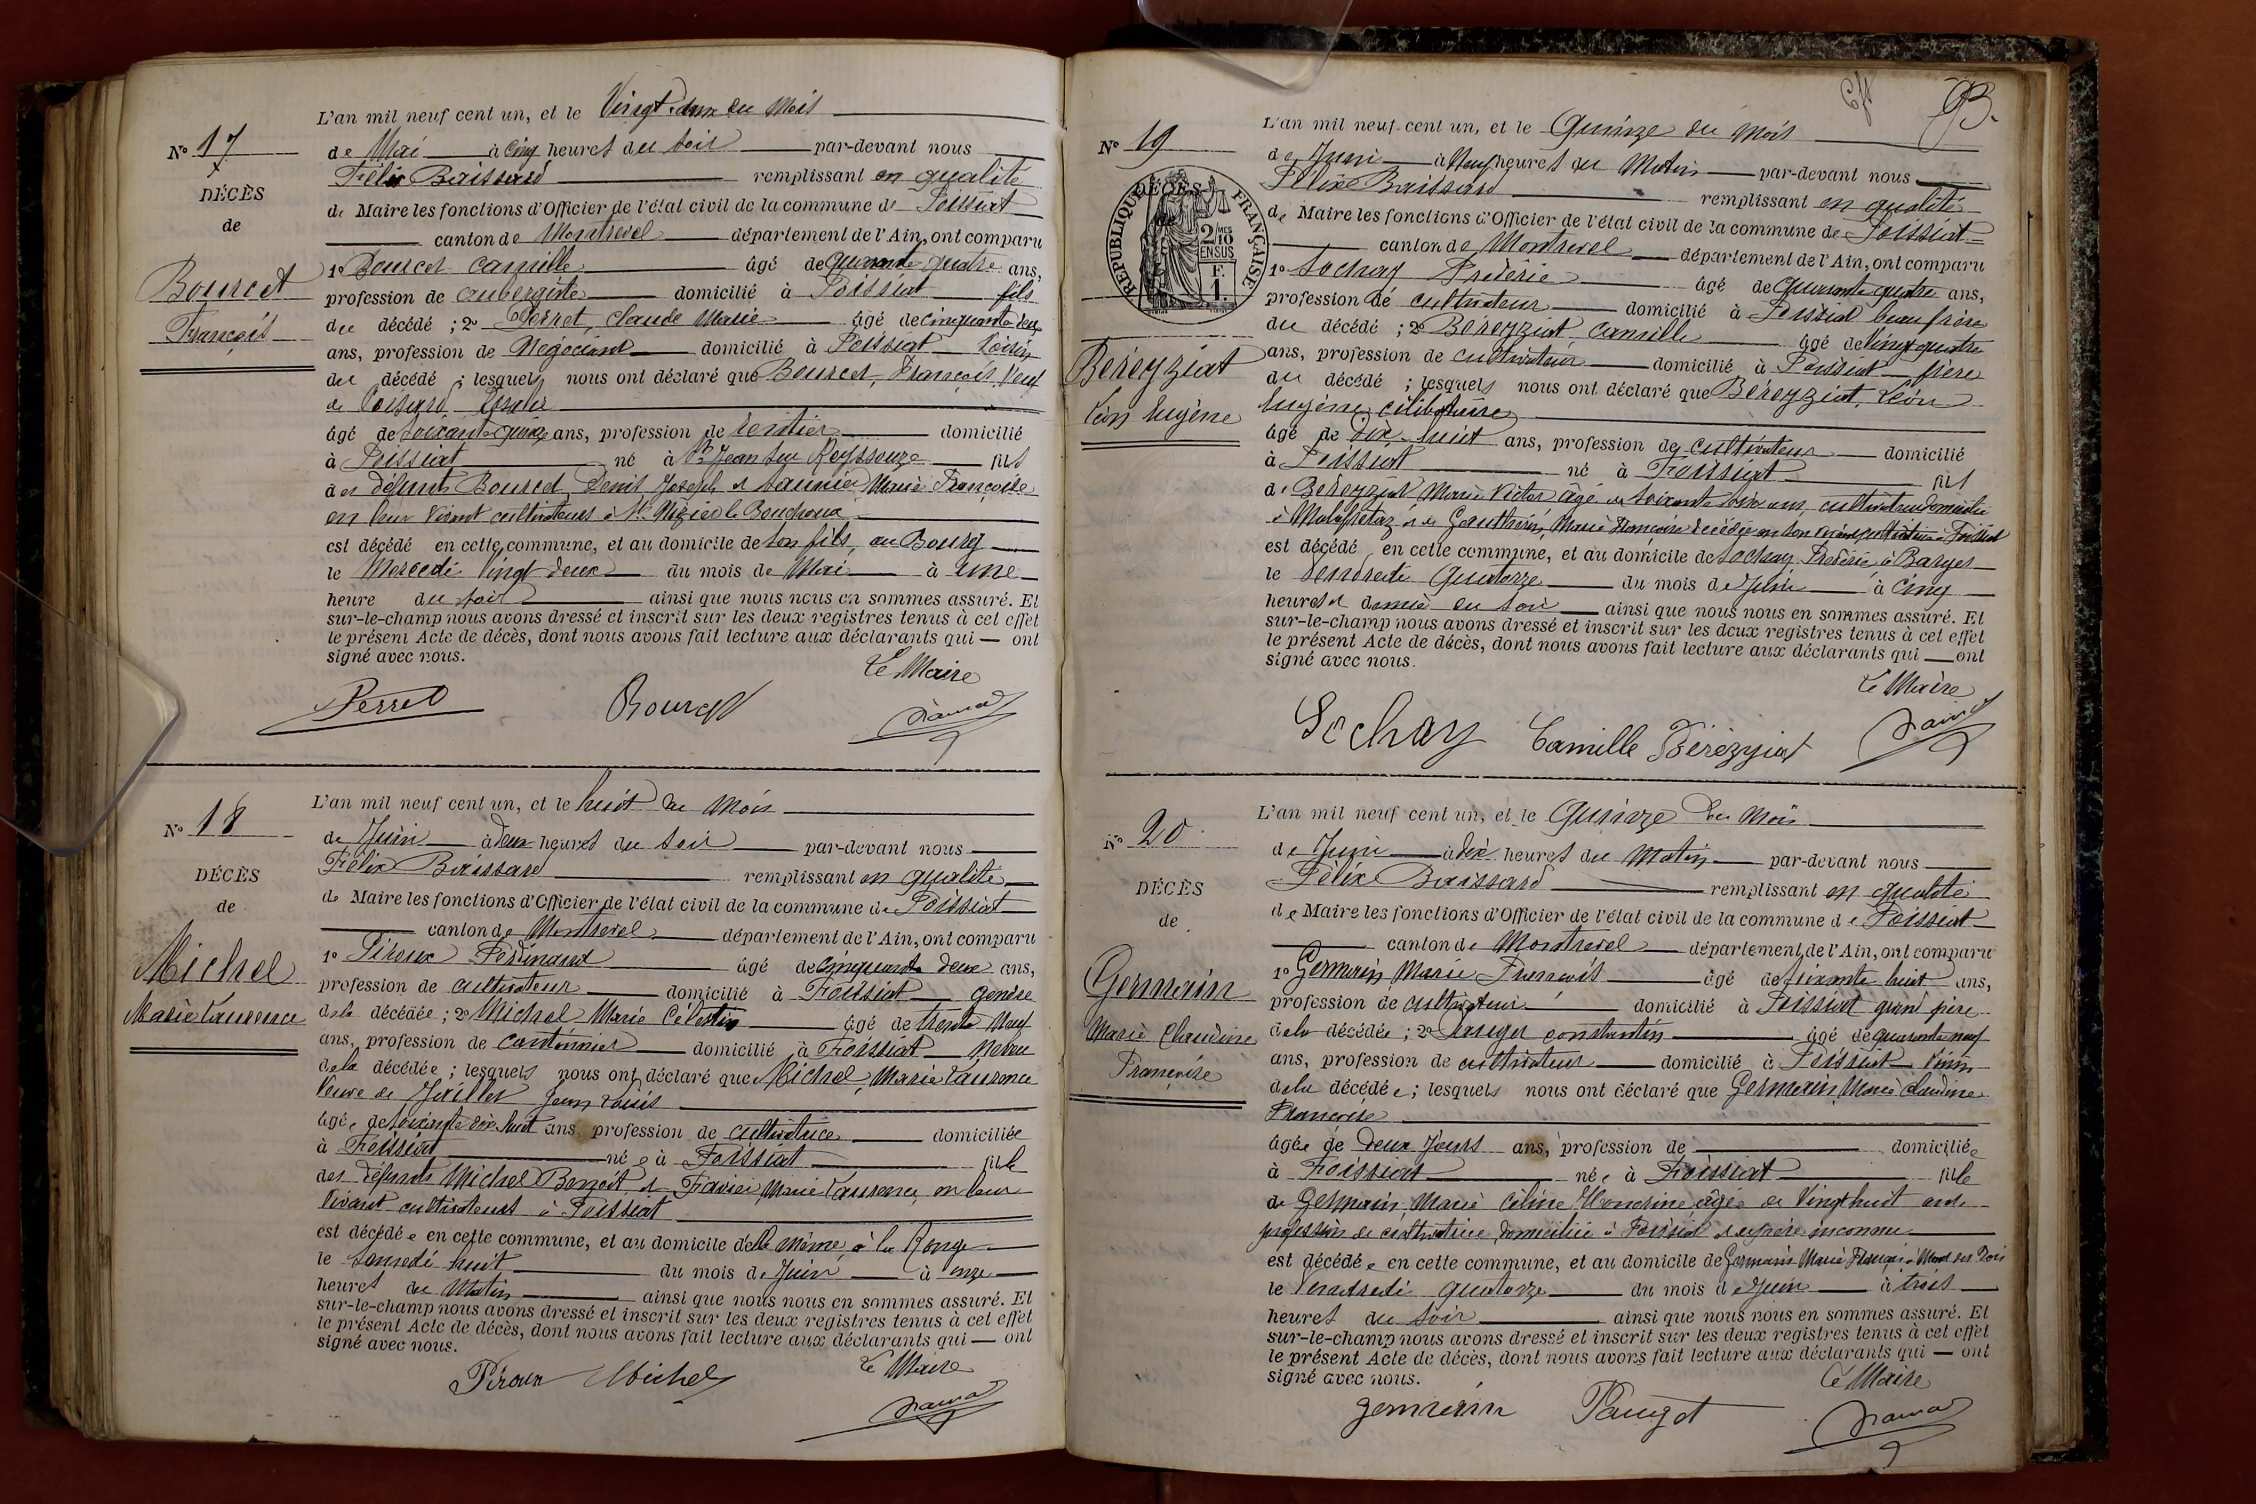 L'an mil neuf cent un, et le Vingt deux du Mois
N° 17
de Mai à Cinq heures du soir par-devant nous
Félix Baissard remplissant en qualité
DÉCÈS
de Maire les fonctions d'Officier de l'état civil de la commune de Foissiat
de
canton de Montrevel département de l'Ain, ont comparu
1° Bourcet Camille âgé de Quarante quatre ans,
Bourcet
profession de aubergiste domicilié à Foissiat fils
François
du décédé ; 2° Perret, Claude Marie âgé de cinquante deux
ans, profession de Négociant domicilié à Foissiat voisin
du décédé ; lesquels nous ont déclaré que Bourcet, François, Veuf
de
âgé de soixante quinze ans, profession de rentier domicilié
à Foissiat né à St Jean sur Reyssouze fils
des défunts Bourcet, Denis Joseph et Marie Françoise
en leur vivant cultivateurs à St Nizier le Bouchoux
est décédé en cette commune, et au domicile de son fils, au Bourg
le Mercredi Vingt deux du mois de Mai à une
heure du soir ainsi que nous nous en sommes assuré. Et
sur-le-champ nous avons dressé et inscrit sur les deux registres tenus à cet effet
le présent Acte de décès, dont nous avons fait lecture aux déclarants qui ont
signé avec nous.
Le Maire
Perret Bourcet
L'an mil neuf cent un, et le huit du Mois
N° 18
de Juin à Deux heures du soir par-devant nous
Félix Baissard remplissant en qualité
DÉCÈS
de Maire les fonctions d'Officier de l'état civil de la commune de Foissiat
de
canton de Montrevel département de l'Ain, ont comparu
1° Piroux Ferdinand âgé de cinquante deux ans,
Michel
profession de cultivateur domicilié à Foissiat gendre
Marie Laurence
de la décédée ; 2° Michel Marie Célestin âgé de trente Neuf
ans, profession de cantonnier domicilié à Foissiat Neveu
de la décédée ; lesquels nous ont déclaré que Michel, Marie Laurence
Veuve de Jaillet Jean Louis
âgée de soixante dix huit ans profession de cultivatrice domiciliée
à Foissiat née à Foissiat fille
des défunts Michel Benoit et Marie Laurence, en leur
vivant cultivateurs à Foissiat
est décédée en cette commune, et au domicile d'elle même, à la Ronge
le Samedi huit du mois de Juin à onze
heures du Matin ainsi que nous nous en sommes assuré. Et
sur-le-champ nous avons dressé et inscrit sur les deux registres tenus à cet effet
le présent Acte de décès, dont nous avons fait lecture aux déclarants qui ont
signé avec nous.
Le Maire
Piroux Michel
93.
L'an mil neuf cent un, et le Quinze du Mois
N° 19
de Juin à Neuf heures du Matin par-devant nous
Félix Baissard remplissant en qualité
DÉCÈS
RÉPUBLIQUE FRANÇAISE
2/10 EN SUS
F. 1.
de Maire les fonctions d'Officier de l'état civil de la commune de Foissiat
canton de Montrevel département de l'Ain, ont comparu
1° Sochay Frédéric âgé de Quarante quatre ans,
profession de cultivateur domicilié à Foissiat beau frère
du décédé ; 2° Béréyziat, Camille âgé de Vingt quatre
Béréyziat
ans, profession de cultivateur domicilié à Foissiat frère
Léon Eugène
du décédé ; lesquels nous ont déclaré que Béréyziat, Léon
Eugène, célibataire
âgé de Dix huit ans, profession de cultivateur domicilié
à Foissiat né à Foissiat fils
de Béréyziat Marie Victor âgé de soixante ans, cultivateur domicilié
à Malafretaz et de Gauthier, Marie Françoise décédée en son vivant cultivatrice à Foissiat
est décédé en cette commune, et au domicile de Sochay Frédéric, à Barges
le Vendredi Quatorze du mois de Juin à Cinq
heures et demie du soir ainsi que nous nous en sommes assuré. Et
sur-le-champ nous avons dressé et inscrit sur les deux registres tenus à cet effet
le présent Acte de décès, dont nous avons fait lecture aux déclarants qui ont
signé avec nous.
Le Maire
Sochay Camille Béréyziat
L'an mil neuf cent un, et le Quinze du Mois
N° 20
de Juin à dix heures du Matin par-devant nous
Félix Baissard remplissant en qualité
DÉCÈS
de Maire les fonctions d'Officier de l'état civil de la commune de Foissiat
de
canton de Montrevel département de l'Ain, ont comparu
1° Germain Marie François âgé de soixante huit ans,
Germain
profession de cultivateur domicilié à Foissiat grand père
Marie Claudine
de la décédée ; 2° Pauget Constantin âgé de quarante neuf
ans, profession de cultivateur domicilié à Foissiat Voisin
Françoise
de la décédée ; lesquels nous ont déclaré que Germain, Marie Claudine
Françoise
âgée de Deux Jours ans, profession de domiciliée
à Foissiat née à Foissiat fille
de Germain, Marie Céline Honorine âgée de Vingt huit ans
profession de cultivatrice, domiciliée à Foissiat et de père inconnu
est décédée en cette commune, et au domicile de Germain Marie François à
le Vendredi quatorze du mois de Juin à trois
heures du soir ainsi que nous nous en sommes assuré. Et
sur-le-champ nous avons dressé et inscrit sur les deux registres tenus à cet effet
le présent Acte de décès, dont nous avons fait lecture aux déclarants qui ont
signé avec nous.
Le Maire
Germain Pauget